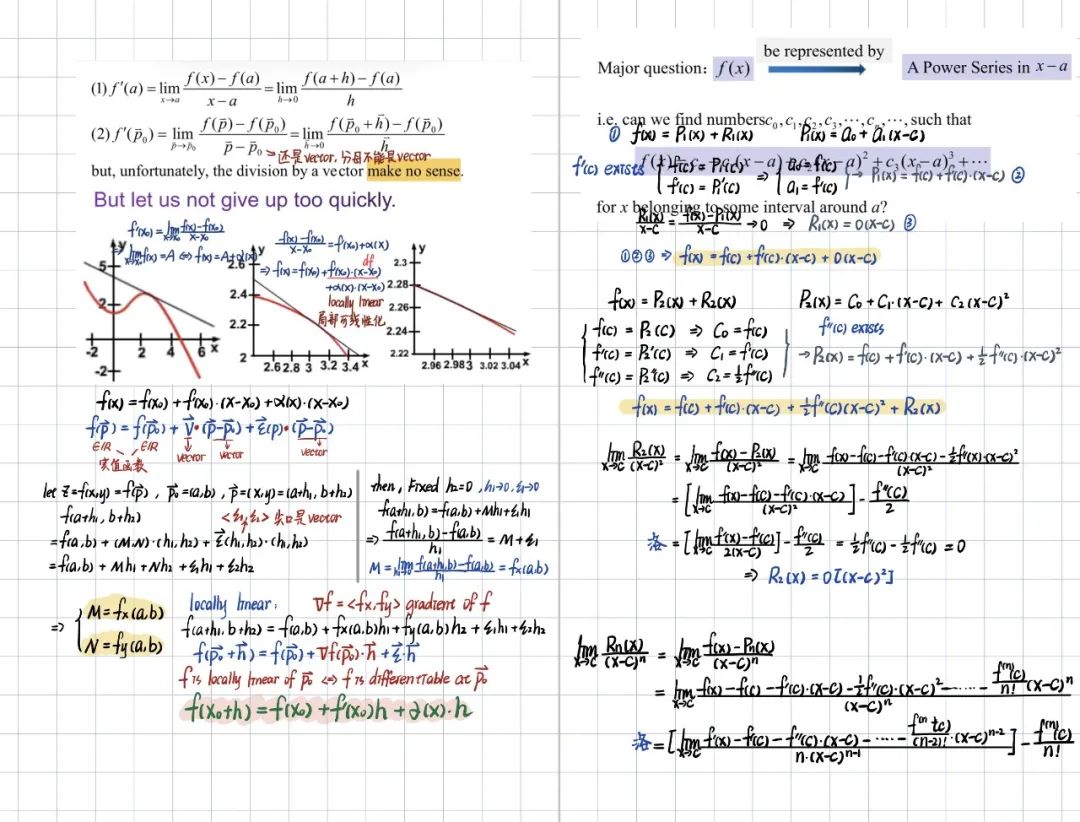 (1) f′(a) = lim_{x→a} (f(x) − f(a))/(x − a) = lim_{h→0} (f(a+h) − f(a))/h
(2) f′(p̄₀) = lim_{p̄→p̄₀} (f(p̄) − f(p̄₀))/(p̄ − p̄₀) = lim_{h̄→0} (f(p̄₀ + h̄) − f(p̄₀))/h̄
→还是vector,分母不能是vector
but, unfortunately, the division by a vector make no sense.
But let us not give up too quickly.
f'(x₀) = lim_{x→x₀} (f(x)-f(x₀))/(x-x₀)
⇒ lim_{x→x₀} f(x) = A ⇔ f(x) = A + α(x)
y
5
2
-2
-2 2 4 6 x
(f(x)-f(x₀))/(x-x₀) = f'(x₀) + α(x)
df
⇒ f(x) = f(x₀) + f'(x₀)·(x-x₀)
+α(x)·(x-x₀)
locally linear
局部可线性化
y
2.6
2.4
2.2
2
2.6 2.8 3 3.2 3.4 x
y
2.3
2.28
2.26
2.24
2.22
2.96 2.98 3 3.02 3.04 x
f(x) = f(x₀) + f'(x₀)·(x-x₀) + α(x)·(x-x₀)
f(p⃗) = f(p⃗₀) + V⃗·(p⃗-p⃗₀) + ε⃗(p)·(p⃗-p⃗₀)
∈R ∈R vector vector vector
实值函数
let z = f(x,y) = f(p⃗), p⃗₀ = (a,b), p⃗ = (x,y) = (a+h₁, b+h₂)
f(a+h₁, b+h₂) <ε₁,ε₂> 尖口是vector
= f(a,b) + (M,N)·(h₁,h₂) + ε⃗(h₁,h₂)·(h₁,h₂)
= f(a,b) + Mh₁ + Nh₂ + ε₁h₁ + ε₂h₂
then, Fixed h₂=0, h₁→0, ε₁→0
f(a+h₁,b) = f(a,b) + Mh₁ + ε₁h₁
⇒ (f(a+h₁,b) - f(a,b))/h₁ = M + ε₁
M = lim_{h₁→0} (f(a+h₁,b) - f(a,b))/h₁ = fx(a,b)
⇒ { M = fx(a,b)
N = fy(a,b)
locally linear: ∇f = <fx,fy> gradient of f
f(a+h₁, b+h₂) = f(a,b) + fx(a,b)h₁ + fy(a,b)h₂ + ε₁h₁ + ε₂h₂
f(p⃗₀+h⃗) = f(p⃗₀) + ∇f(p⃗₀)·h⃗ + ε⃗·h⃗
f is locally linear of p⃗₀ ⇔ f is differentiable at p⃗₀
f(x₀+h) = f(x₀) + f'(x₀)h + α(x)·h
Major question: f(x) be represented by A Power Series in x − a
i.e. can we find numbers c₀, c₁, c₂, c₃, ⋯, cₙ, ⋯, such that
① f(x) = P₁(x) + R₁(x) P₁(x) = a₀ + a₁(x-c)
f(x) = c₀ + c₁(x − a) + c₂(x − a)² + c₃(x − a)³ + ⋯
f'(c) exists { f(c) = P₁(c) ⇒ { a₀ = f(c) → P₁(x) = f(c) + f'(c)·(x-c) ②
f'(c) = P₁'(c) a₁ = f'(c)
for x belonging to some interval around a?
R₁(x)/(x-c) = (f(x)-P₁(x))/(x-c) → 0 ⇒ R₁(x) = o(x-c) ③
①②③ ⇒ f(x) = f(c) + f'(c)·(x-c) + o(x-c)
f(x) = P₂(x) + R₂(x) P₂(x) = C₀ + C₁·(x-c) + C₂(x-c)²
{ f(c) = P₂(c) ⇒ C₀ = f(c) f''(c) exists
f'(c) = P₂'(c) ⇒ C₁ = f'(c)
→ P₂(x) = f(c) + f'(c)·(x-c) + ½f''(c)·(x-c)²
f''(c) = P₂''(c) ⇒ C₂ = ½f''(c)
f(x) = f(c) + f'(c)·(x-c) + ½f''(c)(x-c)² + R₂(x)
lim_{x→c} R₂(x)/(x-c)² = lim_{x→c} (f(x)-P₂(x))/(x-c)² = lim_{x→c} (f(x)-f(c)-f'(c)·(x-c)-½f''(x)·(x-c)²)/(x-c)²
= [lim_{x→c} (f(x)-f(c)-f'(c)·(x-c))/(x-c)²] - f''(c)/2
洛 = [lim_{x→c} (f'(x)-f'(c))/2(x-c)] - f''(c)/2 = ½f''(c) - ½f''(c) = 0
⇒ R₂(x) = o[(x-c)²]
lim_{x→c} Rₙ(x)/(x-c)ⁿ = lim_{x→c} (f(x)-Pₙ(x))/(x-c)ⁿ
= lim_{x→c} (f(x) - f(c) - f'(c)·(x-c) - ½f''(c)·(x-c)² - ⋯⋯ - f⁽ⁿ⁾(c)/n! (x-c)ⁿ)/(x-c)ⁿ
洛 = [lim_{x→c} (f'(x) - f'(c) - f''(c)·(x-c) - ⋯⋯ - f⁽ⁿ(c)/(n-2)!·(x-c)ⁿ⁻²)/n·(x-c)ⁿ⁻¹] - f⁽ⁿ⁾(c)/n!